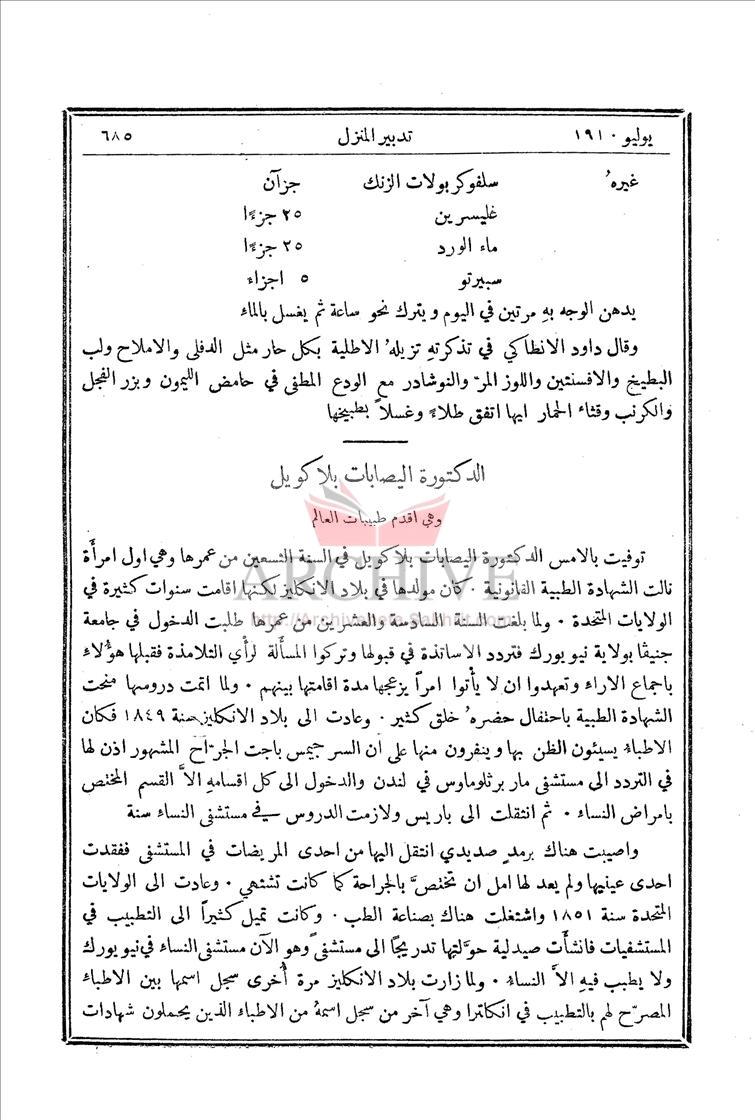 يوليو ١٩١٠ تدبير المنزل ٦٨٥
غيرهُ سلفوكربولات الزنك جزآن
غليسرين ٢٥ جزءًا
ماء الورد ٢٥ جزءًا
سبيرتو ٥ اجزاء
يدهن الوجه بهِ مرتين في اليوم ويترك نحو ساعة ثم يغسل بالماء
وقال داود الانطاكي في تذكرتهِ تزيلهُ الاطلية بكل حار مثل الدفلى والاملاح ولب
البطيخ والافسنتين واللوز المرّ والنوشادر مع الودع المطفى في حامض الليمون وبزر الفجل
والكرنب وقثاء الحمار ايها اتفق طلاءً وغسلاً بطبيخها
الدكتورة اليصابات بلاكويل
وهي اقدم طبيبات العالم
توفيت بالامس الدكتورة اليصابات بلاكويل في السنة التسعين من عمرها وهي اول امرأة
نالت الشهادة الطبية القانونية ٠ كان مولدها في بلاد الانكليز لكنها اقامت سنوات كثيرة في
الولايات المتحدة ٠ ولما بلغت السنة السادسة والعشرين من عمرها طلبت الدخول في جامعة
جنيڤا بولاية نيويورك فتردد الاساتذة في قبولها وتركوا المسألة لرأي التلامذة فقبلها هؤلاء
باجماع الاراء وتعهدوا ان لا يأتوا امراً يزعجها مدة اقامتها بينهم ٠ ولما اتمت دروسها منحت
الشهادة الطبية باحتفال حضرهُ خلق كثير ٠ وعادت الى بلاد الانكليز سنة ١٨٤٩ فكان
الاطباء يسيئون الظن بها وينفرون منها على ان السر جيمس باجت الجرّاح المشهور اذن لها
في التردد الى مستشفى مار برثلوماوس في لندن والدخول الى كل اقسامهِ الاَّ القسم المختص
بامراض النساء ٠ ثم انتقلت الى باريس ولازمت الدروس في مستشفى النساء سنة
واصيبت هناك برمدٍ صديدي انتقل اليها من احدى المريضات في المستشفى ففقدت
احدى عينيها ولم يعد لها امل ان تختصَّ بالجراحة كما كانت تشتهي ٠ وعادت الى الولايات
المتحدة سنة ١٨٥١ واشتغلت هناك بصناعة الطب ٠ وكانت تميل كثيراً الى التطبيب في
المستشفيات فانشأت صيدلية حوَّلتها تدريجًا الى مستشفًى وهو الآن مستشفى النساء في نيويورك
ولا يطبب فيهِ الاَّ النساء ٠ ولما زارت بلاد الانكليز مرة أُخرى سجل اسمها بين الاطباء
المصرّح لهم بالتطبيب في انكلترا وهي آخر من سجل اسمهُ من الاطباء الذين يحملون شهادات
ARCHIVE